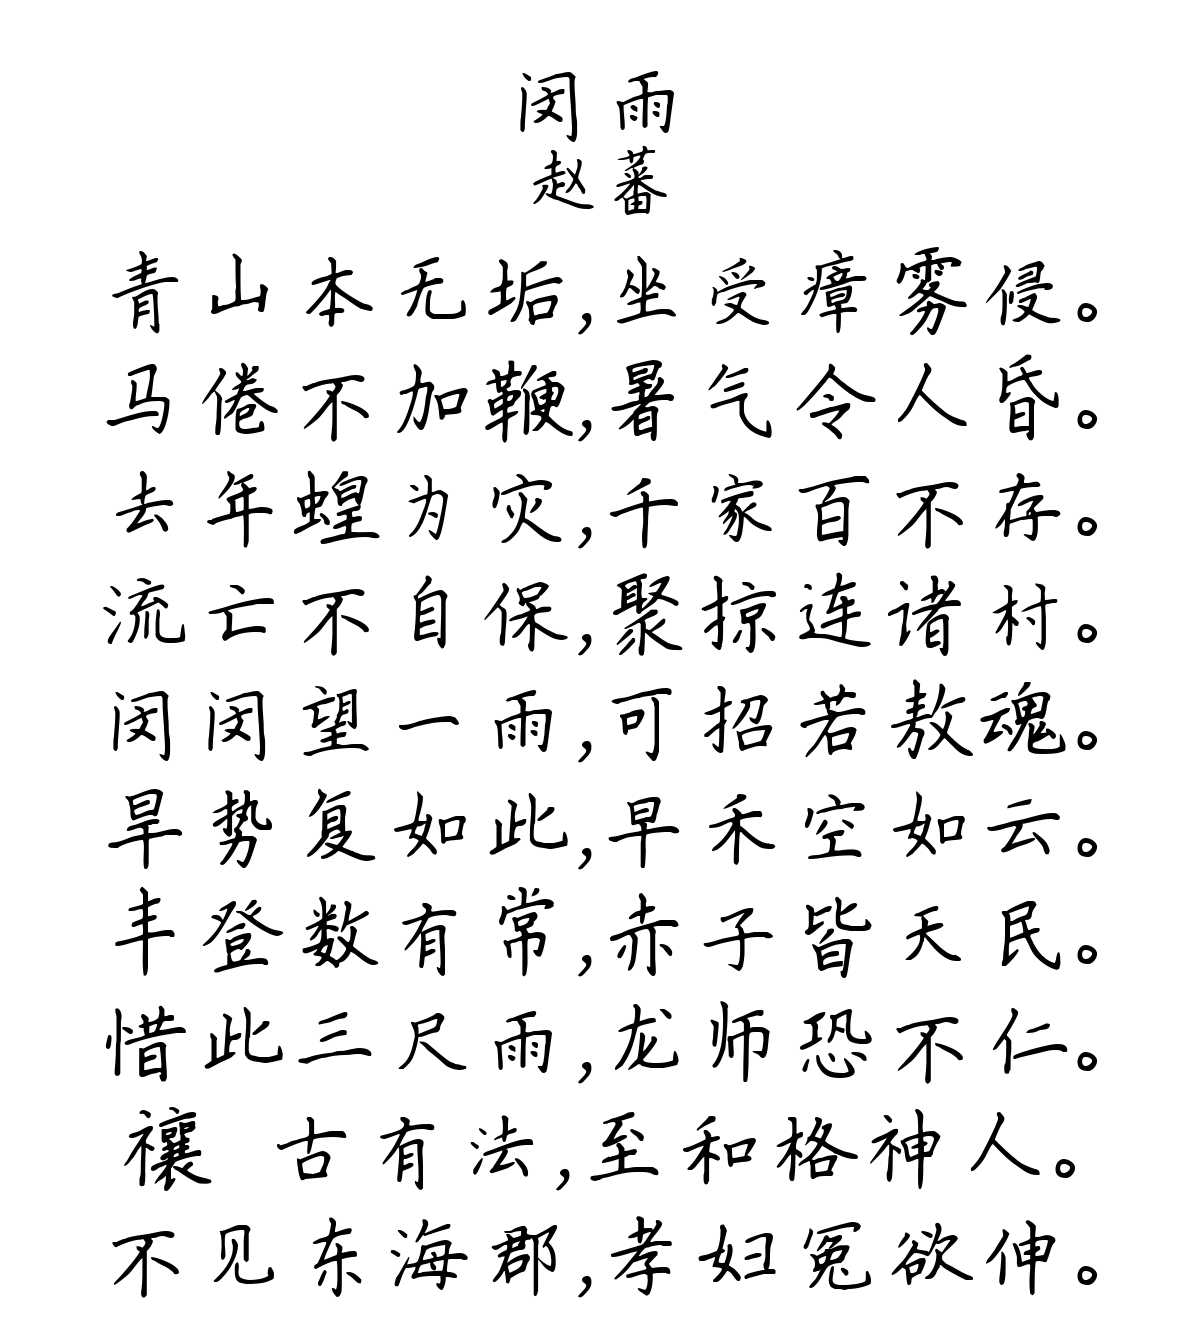 闵雨
赵蕃
青山本无垢,坐受瘴雾侵。
马倦不加鞭,暑气令人昏。
去年蝗为灾,千家百不存。
流亡不自保,聚掠连诸村。
闵闵望一雨,可招若敖魂。
旱势复如此,早禾空如云。
丰登数有常,赤子皆天民。
惜此三尺雨,龙师恐不仁。
禳 古有法,至和格神人。
不见东海郡,孝妇冤欲伸。